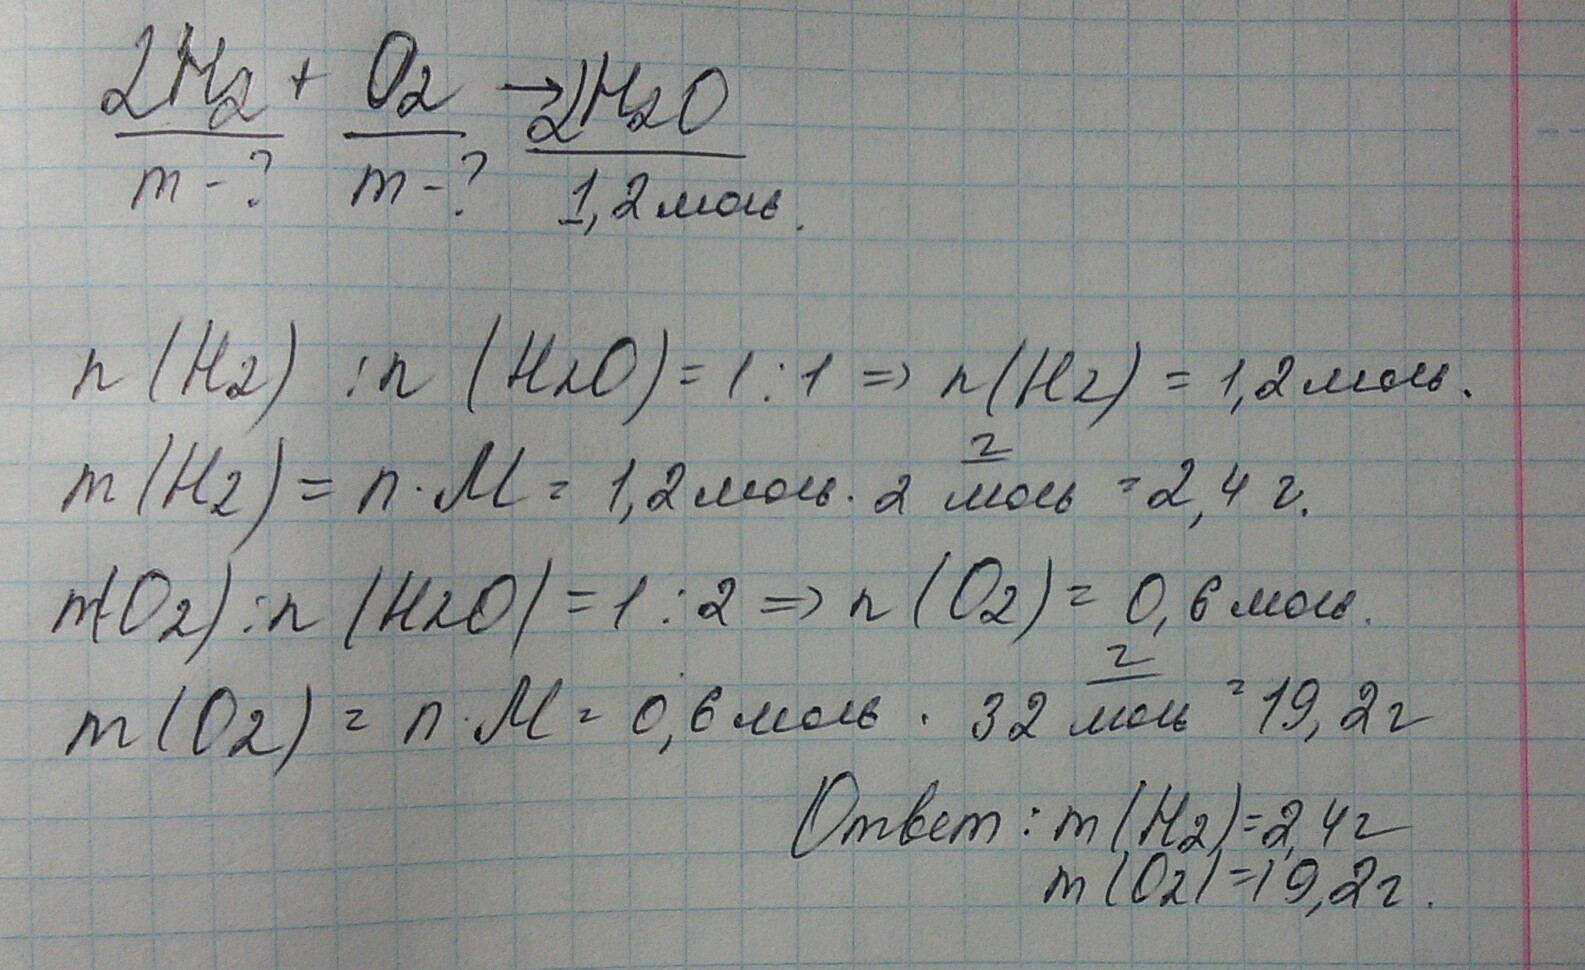 2H2 + O2 → 2H2O
m - ? m - ? 1,2 моль.
n (H2) : n (H2O) = 1 : 1 => n(H2) = 1,2 моль.
m (H2) = n · M = 1,2 моль · 2 г/моль = 2,4 г.
n(O2) : n (H2O) = 1 : 2 => n (O2) = 0,6 моль.
m (O2) = n · M = 0,6 моль · 32 г/моль = 19,2 г
Ответ : m (H2) = 2,4 г
m (O2) = 19,2 г.